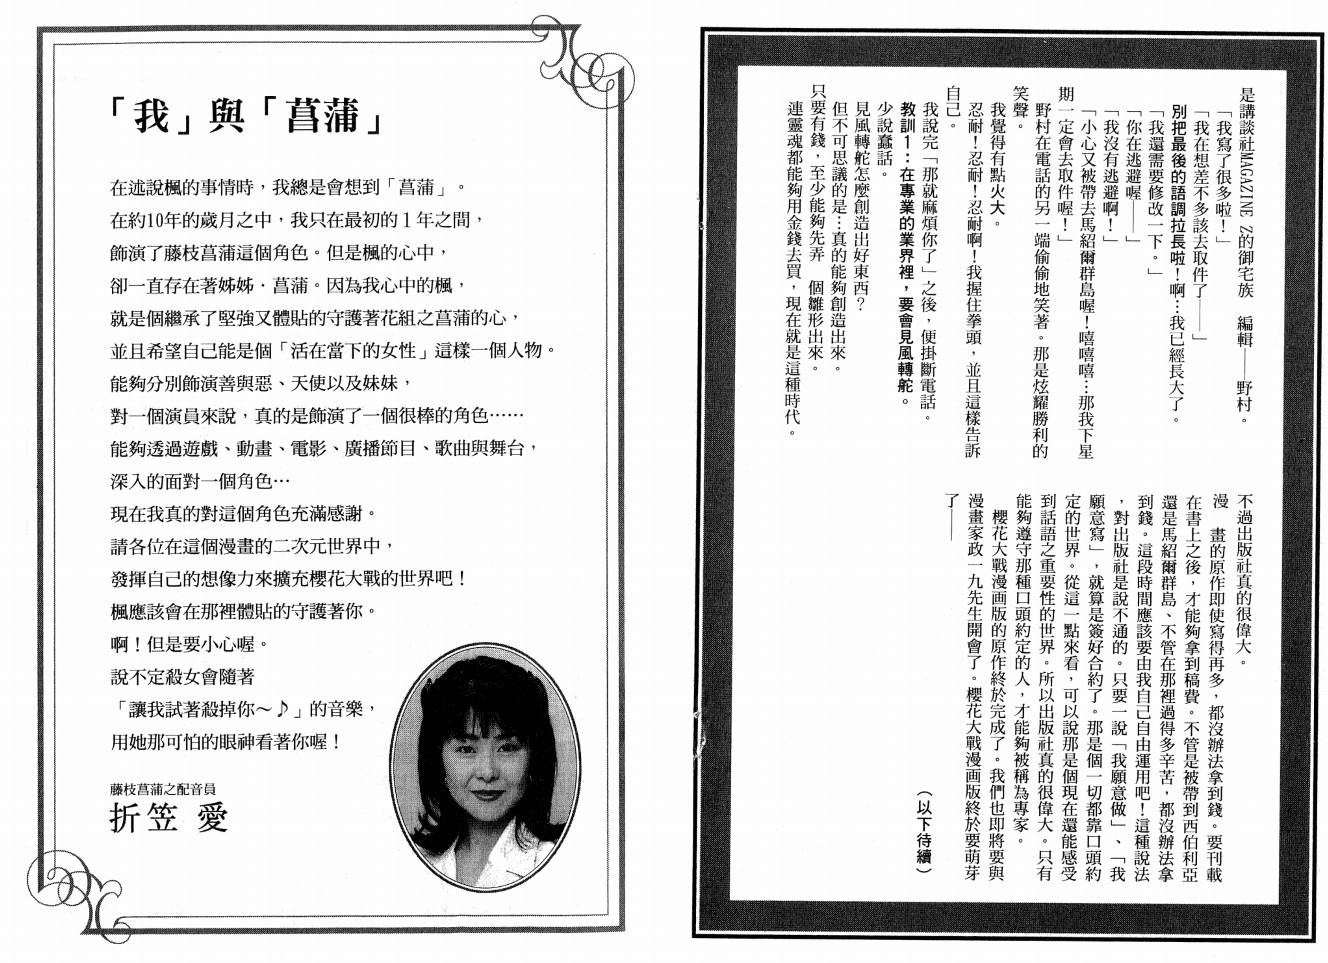 「我」與「菖蒲」
在述說楓的事情時，我總是會想到「菖蒲」。
在約10年的歲月之中，我只在最初的１年之間，
飾演了藤枝菖蒲這個角色。但是楓的心中，
卻一直存在著姊姊‧菖蒲。因為我心中的楓，
就是個繼承了堅強又體貼的守護著花組之菖蒲的心，
並且希望自己能是個「活在當下的女性」這樣一個人物。
能夠分別飾演善與惡、天使以及妹妹，
對一個演員來說，真的是飾演了一個很棒的角色……
能夠透過遊戲、動畫、電影、廣播節目、歌曲與舞台，
深入的面對一個角色…
現在我真的對這個角色充滿感謝。
請各位在這個漫畫的二次元世界中，
發揮自己的想像力來擴充櫻花大戰的世界吧！
楓應該會在那裡體貼的守護著你。
啊！但是要小心喔。
說不定殺女會隨著
「讓我試著殺掉你～♪」的音樂，
用她那可怕的眼神看著你喔！
藤枝菖蒲之配音員
折笠 愛
是講談社MAGAZINE Z的御宅族　編輯——野村。
「我寫了很多啦！」
「我在想差不多該去取件了——」
別把最後的語調拉長啦！啊…我已經長大了。
「我還需要修改一下。」
「你在逃避喔——」
「我沒有逃避啊！」
「小心又被帶去馬紹爾群島喔！嘻嘻嘻…那我下星
期一定會去取件喔！」
野村在電話的另一端偷偷地笑著。那是炫耀勝利的
笑聲。
我覺得有點火大。
忍耐！忍耐！忍耐啊！我握住拳頭，並且這樣告訴
自己。
我說完「那就麻煩你了」之後，便掛斷電話。
教訓１：在專業的業界裡，要會見風轉舵。
少說蠢話。
見風轉舵怎麼創造出好東西？
但不可思議的是…真的能夠創造出來。
只要有錢，至少能夠先弄　個雛形出來。
連靈魂都能夠用金錢去買，現在就是這種時代。
不過出版社真的很偉大。
漫　畫的原作即使寫得再多，都沒辦法拿到錢。要刊載
在書上之後，才能夠拿到稿費。不管是被帶到西伯利亞
還是馬紹爾群島、不管在那裡過得多辛苦，都沒辦法拿
到錢。這段時間應該要由我自己自由運用吧！這種說法
，對出版社是說不通的。只要一說「我願意做」、「我
願意寫」，就算是簽好合約了。那是個一切都靠口頭約
定的世界。從這一點來看，可以說那是個現在還能感受
到話語之重要性的世界。所以出版社真的很偉大。只有
能夠遵守那種口頭約定的人，才能夠被稱為專家。
櫻花大戰漫画版的原作終於完成了。我們也即將要與
漫畫家政一九先生開會了。櫻花大戰漫画版終於要萌芽
了——
（以下待續）